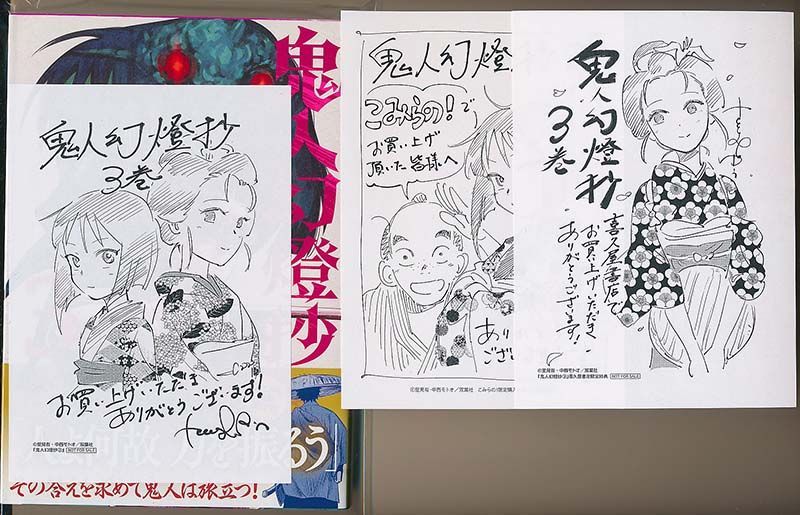 鬼人幻燈抄
鬼人幻燈抄
3巻
お買い上げいただき
ありがとうございます!
©里見有・中西モトオ/双葉社
『鬼人幻燈抄③』 NOT FOR SALE
ろう」
その答えを求めて鬼人は旅立つ!
鬼人幻燈
こみらの!で
お買い上げ
頂いた皆様へ
あり
ござい
©里見有・中西モトオ/双葉社 こみらの!限定購入
鬼人幻燈抄
3巻
喜久屋書店で
お買い上げいただき
ありがとうございます!
©里見有・中西モトオ/双葉社
『鬼人幻燈抄③』喜久屋書店限定特典 NOT FOR SALE